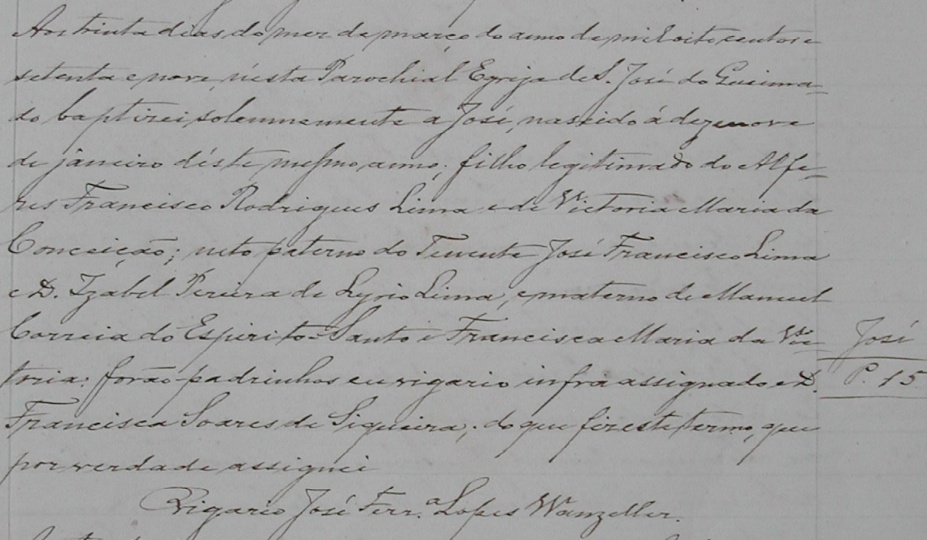 Aos trinta dias do mez de março do anno de mil oito centos e
setenta e nove, n'esta Parochial Egreja de S. José do Queima-
do baptizei solemnemente a José, nascido á dezenove
de janeiro d'este mesmo anno; filho legitimado do Alfe-
res Francisco Rodrigues Lima e de Victoria Maria da
Conceição; neto paterno do Tenente José Francisco Lima
e D. Izabel Pereira de Lyrio Lima, e materno de Manuel
Correia do Espirito-Santo e Francisca Maria da Vic-
toria: forão padrinhos eu vigario infra assignado e D.
Francisca Soares de Siqueira; do que fiz este termo, que
por verdade assignei
Vigario José Ferr.ª Lopes Wanzeller.
José
P. 15